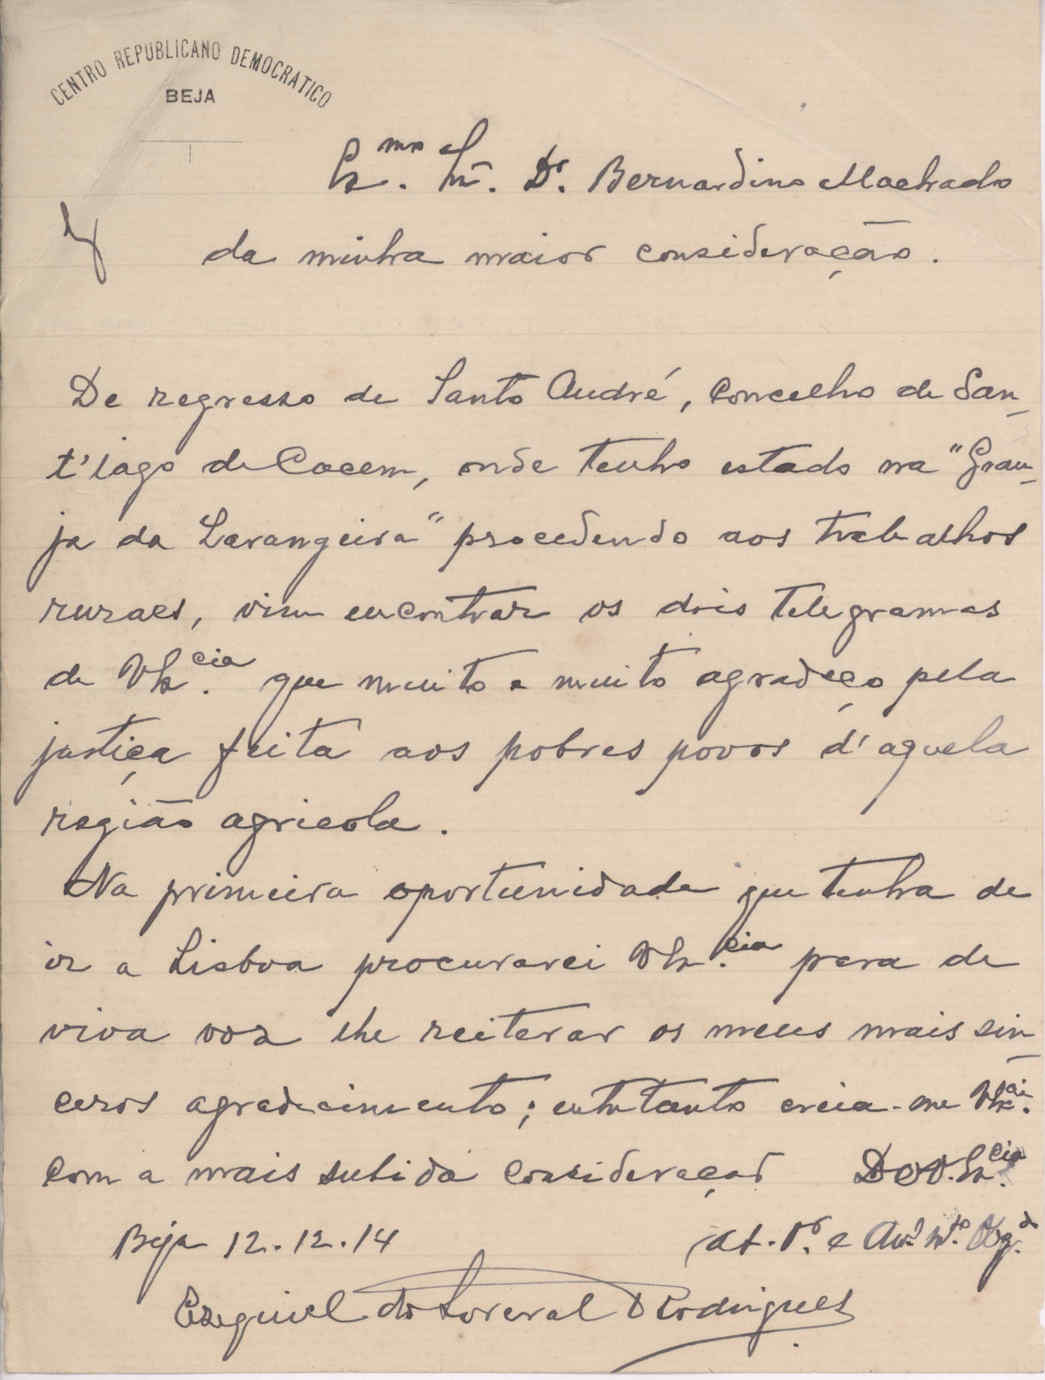 CENTRO REPUBLICANO DEMOCRATICO
BEJA
Ex.mo Sr. Dr. Bernardino Machado
da minha maior consideração.
De regresso de Santo André, concelho de San-
t'iago de Cacem, onde tenho estado na "Gran-
ja da Larangeira" procedendo aos trabalhos
ruraes, vim encontrar os dois telegramas
de VEx.cia que muito e muito agradeço pela
justiça feita aos pobres povos d'aquela
região agricola.
Na primeira oportunidade que tenha de
ir a Lisboa procurarei VEx.cia para de
viva voz lhe reiterar os meus mais sin-
ceros agradecimento; entretanto creia-me VEx.cia
com a mais subida consideração De V.Ex.cia
Beja 12.12.14 At. Vr. e Am. mto. Obg.do
Ezequiel do Soveral Rodrigues